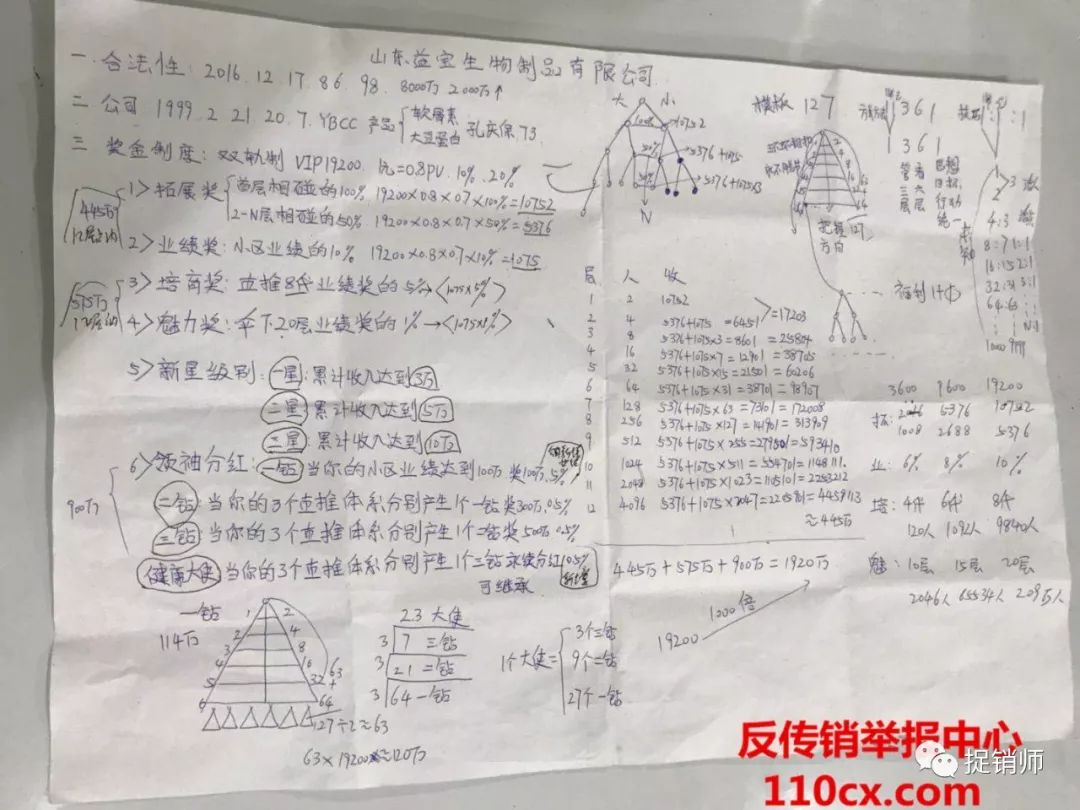 山东益宝生物制品有限公司
一 合法性: 2016.12.17. 86. 98. 8000万 2000万↑
二 公司 1999.2.21.20.7. YBCC 产品 软骨素 大豆蛋白 孔庆保 73
三 奖金制度: 双轨制 VIP19200. =0.8PV. 10%. 20%
445万 12层
1> 拓展奖 首层相碰的100% 19200×0.8×0.7×100%=10752
2-N层相碰的50% 19200×0.8×0.7×50%=5376
2> 业绩奖: 小区业绩的10% 19200×0.8×0.7×10%=1075
575万
3> 培育奖: 直推8代业绩奖的5%→<1075×5%>
4> 魅力奖: 伞下20层业绩奖的1%→<1075×1%>
5> 新星级别: 一星: 累计收入达到3万
二星: 累计收入达到5万
三星: 累计收入达到10万
900万
6> 领袖分红: 一钻 当你的小区业绩达到100万 奖100万.5%
二钻: 当你的3个直推体系分别产生1个一钻奖300万,0.5%
三钻: 当你的3个直推体系分别产生1个二钻奖500万 0.5%
健康大使 当你的3个直推体系分别产生1个三钻永续分红 0.5%
可继承
一钻
114万
1 2
2 4
3 8
4 16
5 32
6 64
63
127÷2≈63
63×19200≈120万
2.3 大使
3 7 三钻
3 21 二钻
3 64 一钻
1个大使=
3个三钻
9个二钻
27个一钻
大 小
100%
10752
50%
5376+1075
50%
5376+1075×3
N
层 人 收
1 2 10752
2 4 5376+1075 =6451 >=17203
3 8 5376+1075×3=8601 =25804
4 16 5376+1075×7=12901 =38705
5 32 5376+1075×15=21501 =60206
6 64 5376+1075×31=38701=98907
7 128 5376+1075×63=73101=172008
8 256 5376+1075×127=141901=313909
9 512 5376+1075×255=279501=593410
10 1024 5376+1075×511=554701=1148111
11 2048 5376+1075×1023=1105101=2253212
12 4096 5376+1075×2047=2205901=4459113
≈445万
445万+575万+900万=1920万
19200
1000倍
模板 127
把握127
方向
361
361
管者 思想
三 六 目标
层 层 行动
统一
:1
3
4:3
8:7 1:1
16:15 2:1
32:31 3:1
64:63
福利
3600 9600 19200
拓: 2016 5376 10752
1008 2688 5376
业: 6% 8% 10%
培: 4代 6代 8代
120人 1092人 9840人
魅: 10层 15层 20层
2046人 65534人 209万人
反传销举报中心
110cx.com
捉销师